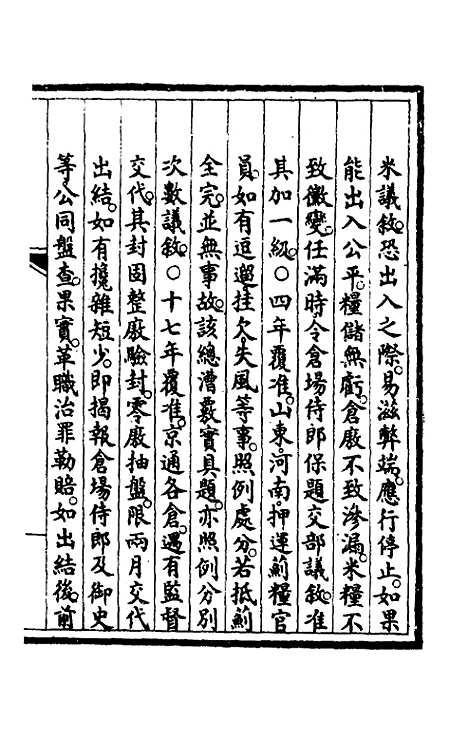 米議敘。恐出入之際。易滋弊端。應行停止。如果
能出入公平。糧儲無虧。倉廒不致滲漏。米糧不
致黴變。任滿時令倉場侍郎保題交部議敘。准
其加一級。○四年覆准。山東河南。押運薊糧官
員。如有逗遛挂欠。失風等事。照例處分。若抵薊
全完。並無事故。該總漕覈實具題。亦照例分別
次數議敘。○十七年覆准。京通各倉。遇有監督
交代。其封固整廒驗封。零廒抽盤。限兩月交代
出結。如有攙雜短少。即揭報倉場侍郎及御史
等。公同盤查。果實。革職治罪勒賠。如出結後。前